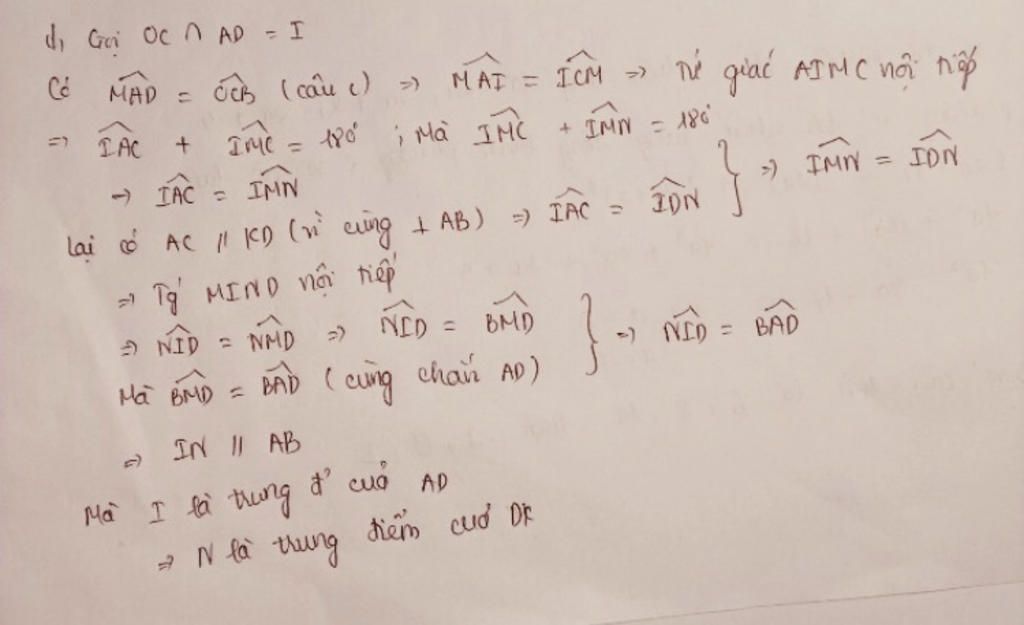 d, Gọi OC ∩ AD = I
Có \widehat{MAD} = \widehat{OCB} (câu c) => \widehat{MAI} = \widehat{ICM} => Tứ giác AIMC nội tiếp
=> \widehat{IAC} + \widehat{IMC} = 180° ; Mà \widehat{IMC} + \widehat{IMN} = 180°
-> \widehat{IAC} = \widehat{IMN}
Lại có AC // KD (vì cùng ⊥ AB) => \widehat{IAC} = \widehat{IDN} } => \widehat{IMN} = \widehat{IDN}
=> Tg MIND nội tiếp
=> \widehat{NID} = \widehat{NMD} => \widehat{NID} = \widehat{BMD}
Mà \widehat{BMD} = \widehat{BAD} (cùng chắn AD) } => \widehat{NID} = \widehat{BAD}
=> IN // AB
Mà I là trung đ' của AD
=> N là trung điểm của DK